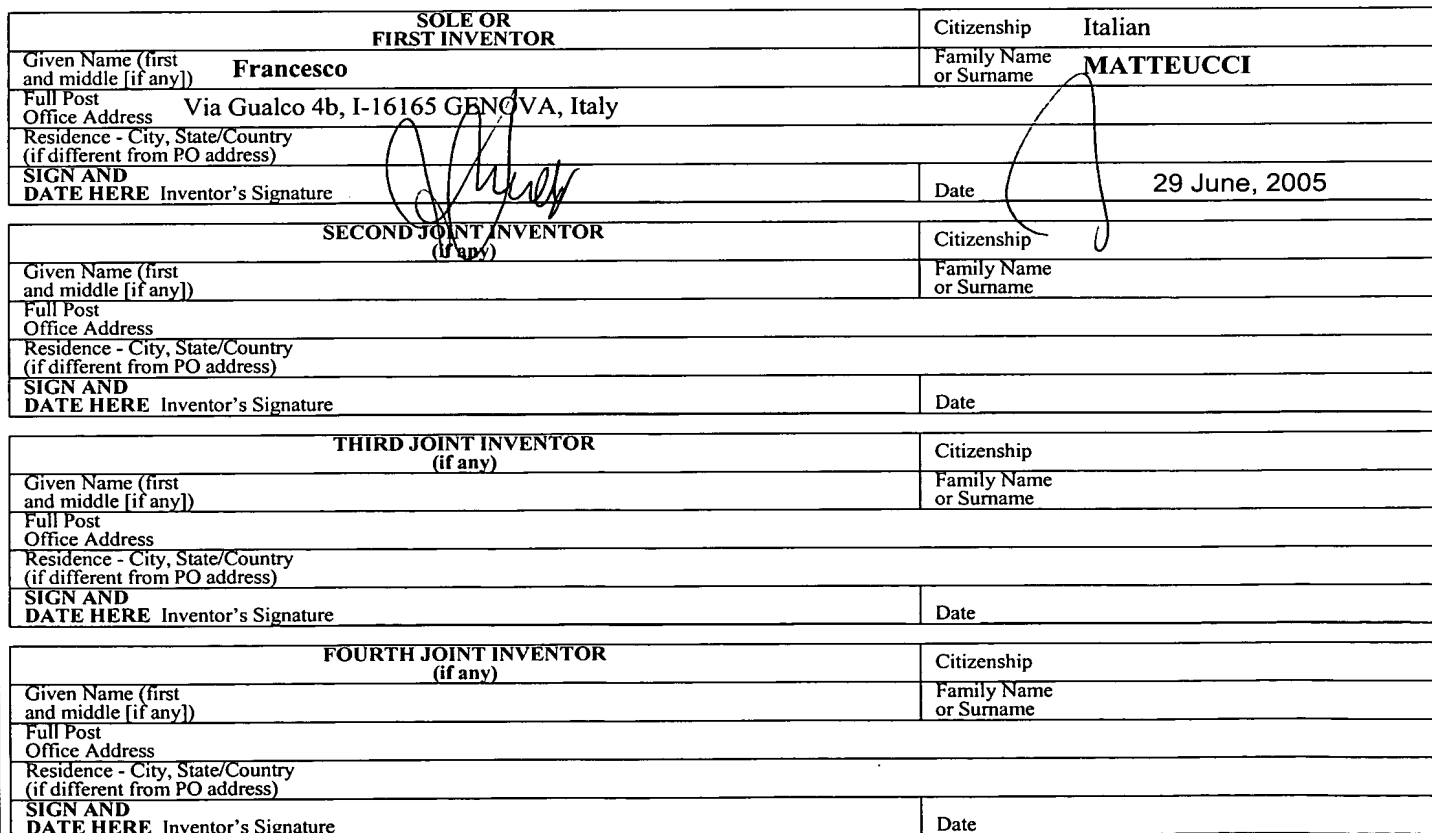 SOLE OR
FIRST INVENTOR
Citizenship Italian
Given Name (first
and middle [if any]) Francesco
Family Name
or Surname MATTEUCCI
Full Post
Office Address Via Gualco 4b, I-16165 GENOVA, Italy
Residence - City, State/Country
(if different from PO address)
SIGN AND
DATE HERE Inventor's Signature
Date 29 June, 2005
SECOND JOINT INVENTOR
(if any)
Citizenship
Given Name (first
and middle [if any])
Family Name
or Surname
Full Post
Office Address
Residence - City, State/Country
(if different from PO address)
SIGN AND
DATE HERE Inventor's Signature
Date
THIRD JOINT INVENTOR
(if any)
Citizenship
Given Name (first
and middle [if any])
Family Name
or Surname
Full Post
Office Address
Residence - City, State/Country
(if different from PO address)
SIGN AND
DATE HERE Inventor's Signature
Date
FOURTH JOINT INVENTOR
(if any)
Citizenship
Given Name (first
and middle [if any])
Family Name
or Surname
Full Post
Office Address
Residence - City, State/Country
(if different from PO address)
SIGN AND
DATE HERE Inventor's Signature
Date